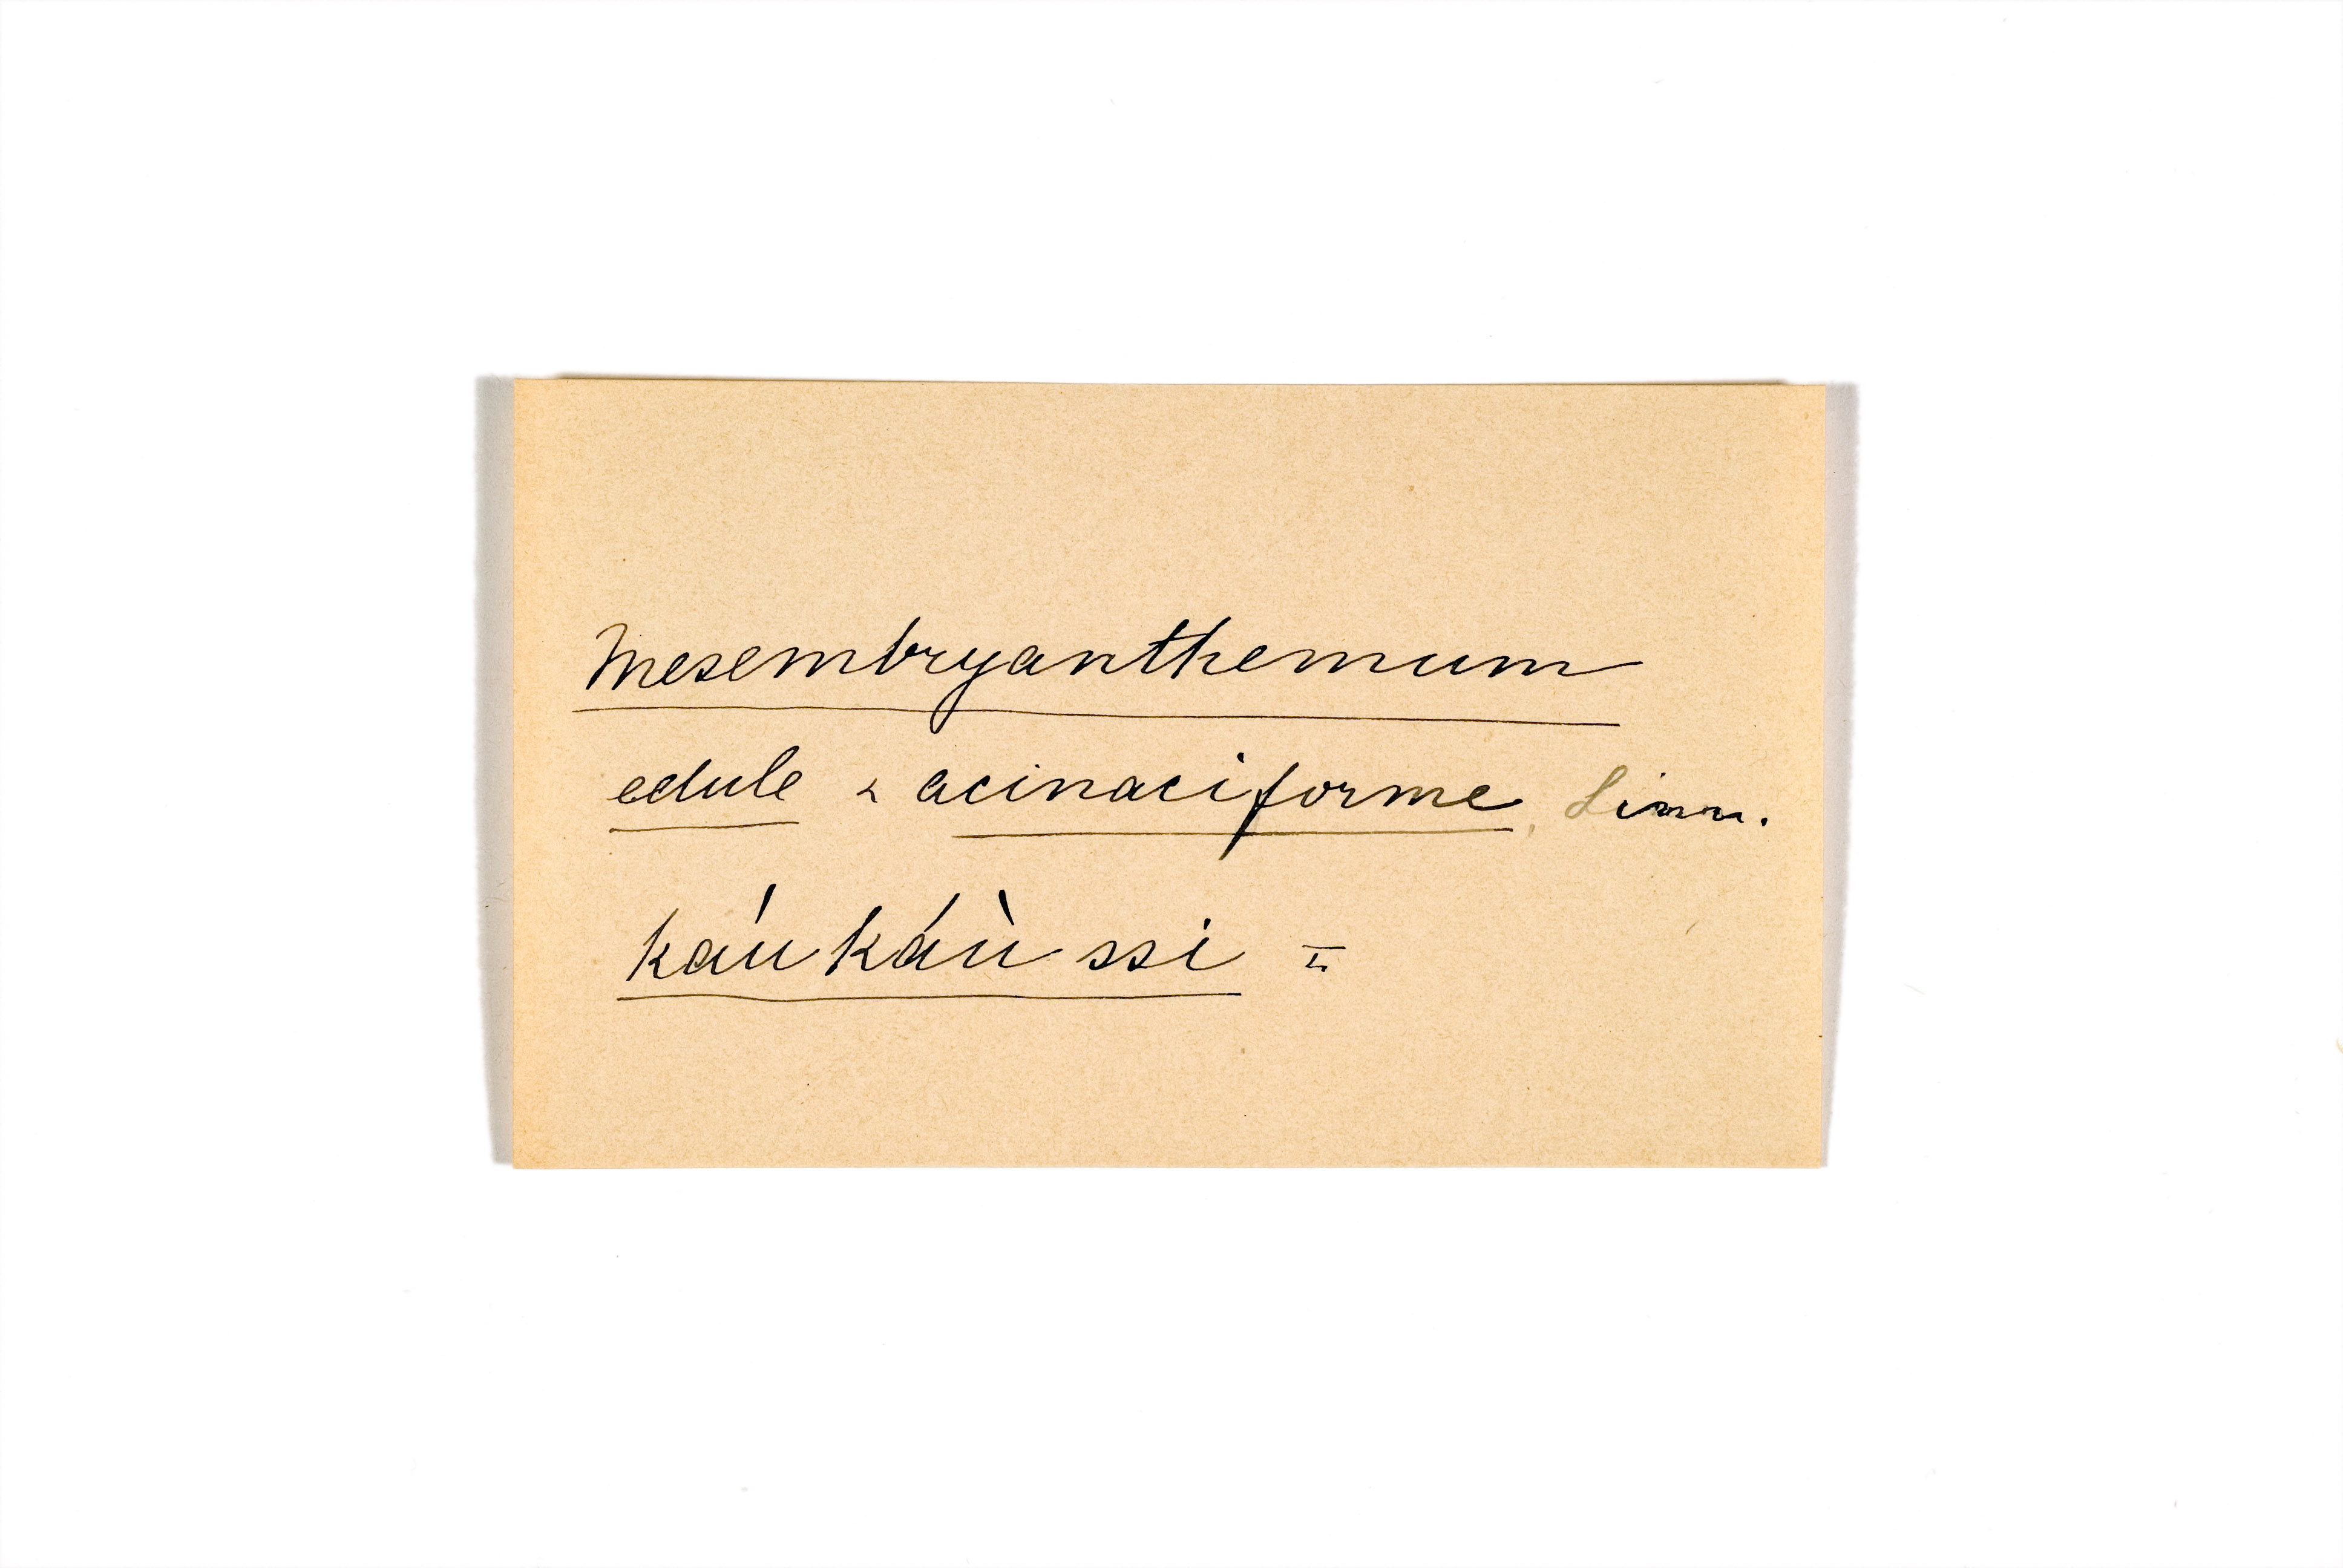 Mesembryanthemum
edule & acinaciforme, Linn.
káu káù ssi =